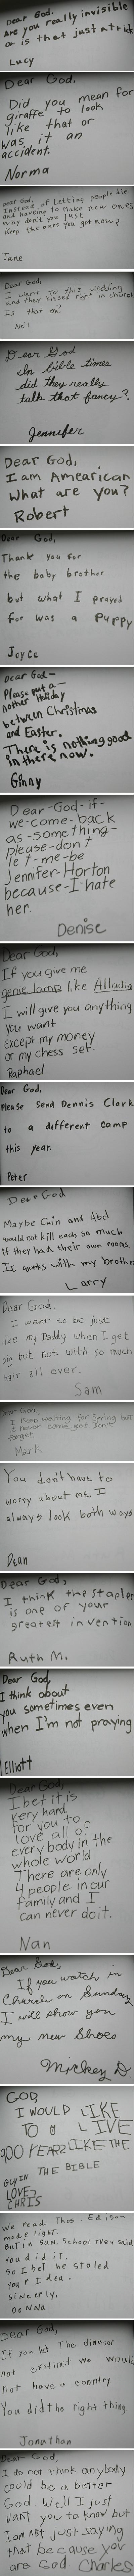 Dear God,
Are you really invisible
or is that just a trick
Lucy
Dear God,
Did you mean for
giraffe to look
like that or
was it an
accident.
Norma
Dear God,
Instead of letting people die
and haveing to make new ones
why don't you just
keep the ones you got now?
Jane
Dear God,
I went to this wedding
and they kissed right in church
Is that ok?
Neil
Dear God
In bible times
did they really
talk that fancy?
Jennifer
Dear God,
I am Amearican
What are you?
Robert
Dear God,
Thank you for
the baby brother
but what I prayed
for was a puppy
Joyce
Dear God-
Please put a-
nother Holiday
between Christmas
and Easter.
There is nothing good
in there now.
Ginny
Dear-God-if-
we-come-back
as-something-
please-don't
let-me-be
Jennifer-Horton
because-I-hate
her.
Denise
Dear God,
If you give me
genie lamp like Alladin
I will give you anything
you want
except my money
or my chess set.
Raphael
Dear God,
Please Send Dennis Clark
to a different camp
this year.
Peter
Dear God
Maybe Cain and Abel
would not kill each so much
if they had their own rooms.
It works with my brother
Larry
Dear God,
I want to be just
like my Daddy when I get
big but not with so much
hair all over.
Sam
Dear God,
I keep waiting for Spring but
it never come yet. Don't
forget.
Mark
You don't have to
worry about me. I
always look both ways
Dean
Dear God,
I think the stapler
is one of your
greatest invention
Ruth M.
Dear God,
I think about
you sometimes even
when I'm not praying
Elliott
Dear God,
I bet it is
very hard
for you to
love all of
every body in the
whole world
There are only
4 people in our
family and I
can never do it.
Nan
Dear God,
If you watch in
Church on Sunday
I will show you
my new Shoes
Mickey D.
GOD,
I WOULD LIKE
TO LIVE
900 YEARS LIKE THE
GUY IN THE BIBLE
LOVE,
CHRIS
We read Thos. Edison
made light.
But in Sun. School they said
you did it.
So I bet he stoled
your Idea.
Sincerly,
Donna
Dear God,
If you let the dinasor
not exstinct we would
not have a country
You did the right thing.
Jonathan
Dear God,
I do not think anybody
could be a better
God Well I just
want you to know but
I am NOT just saying
that because you
are God Charles